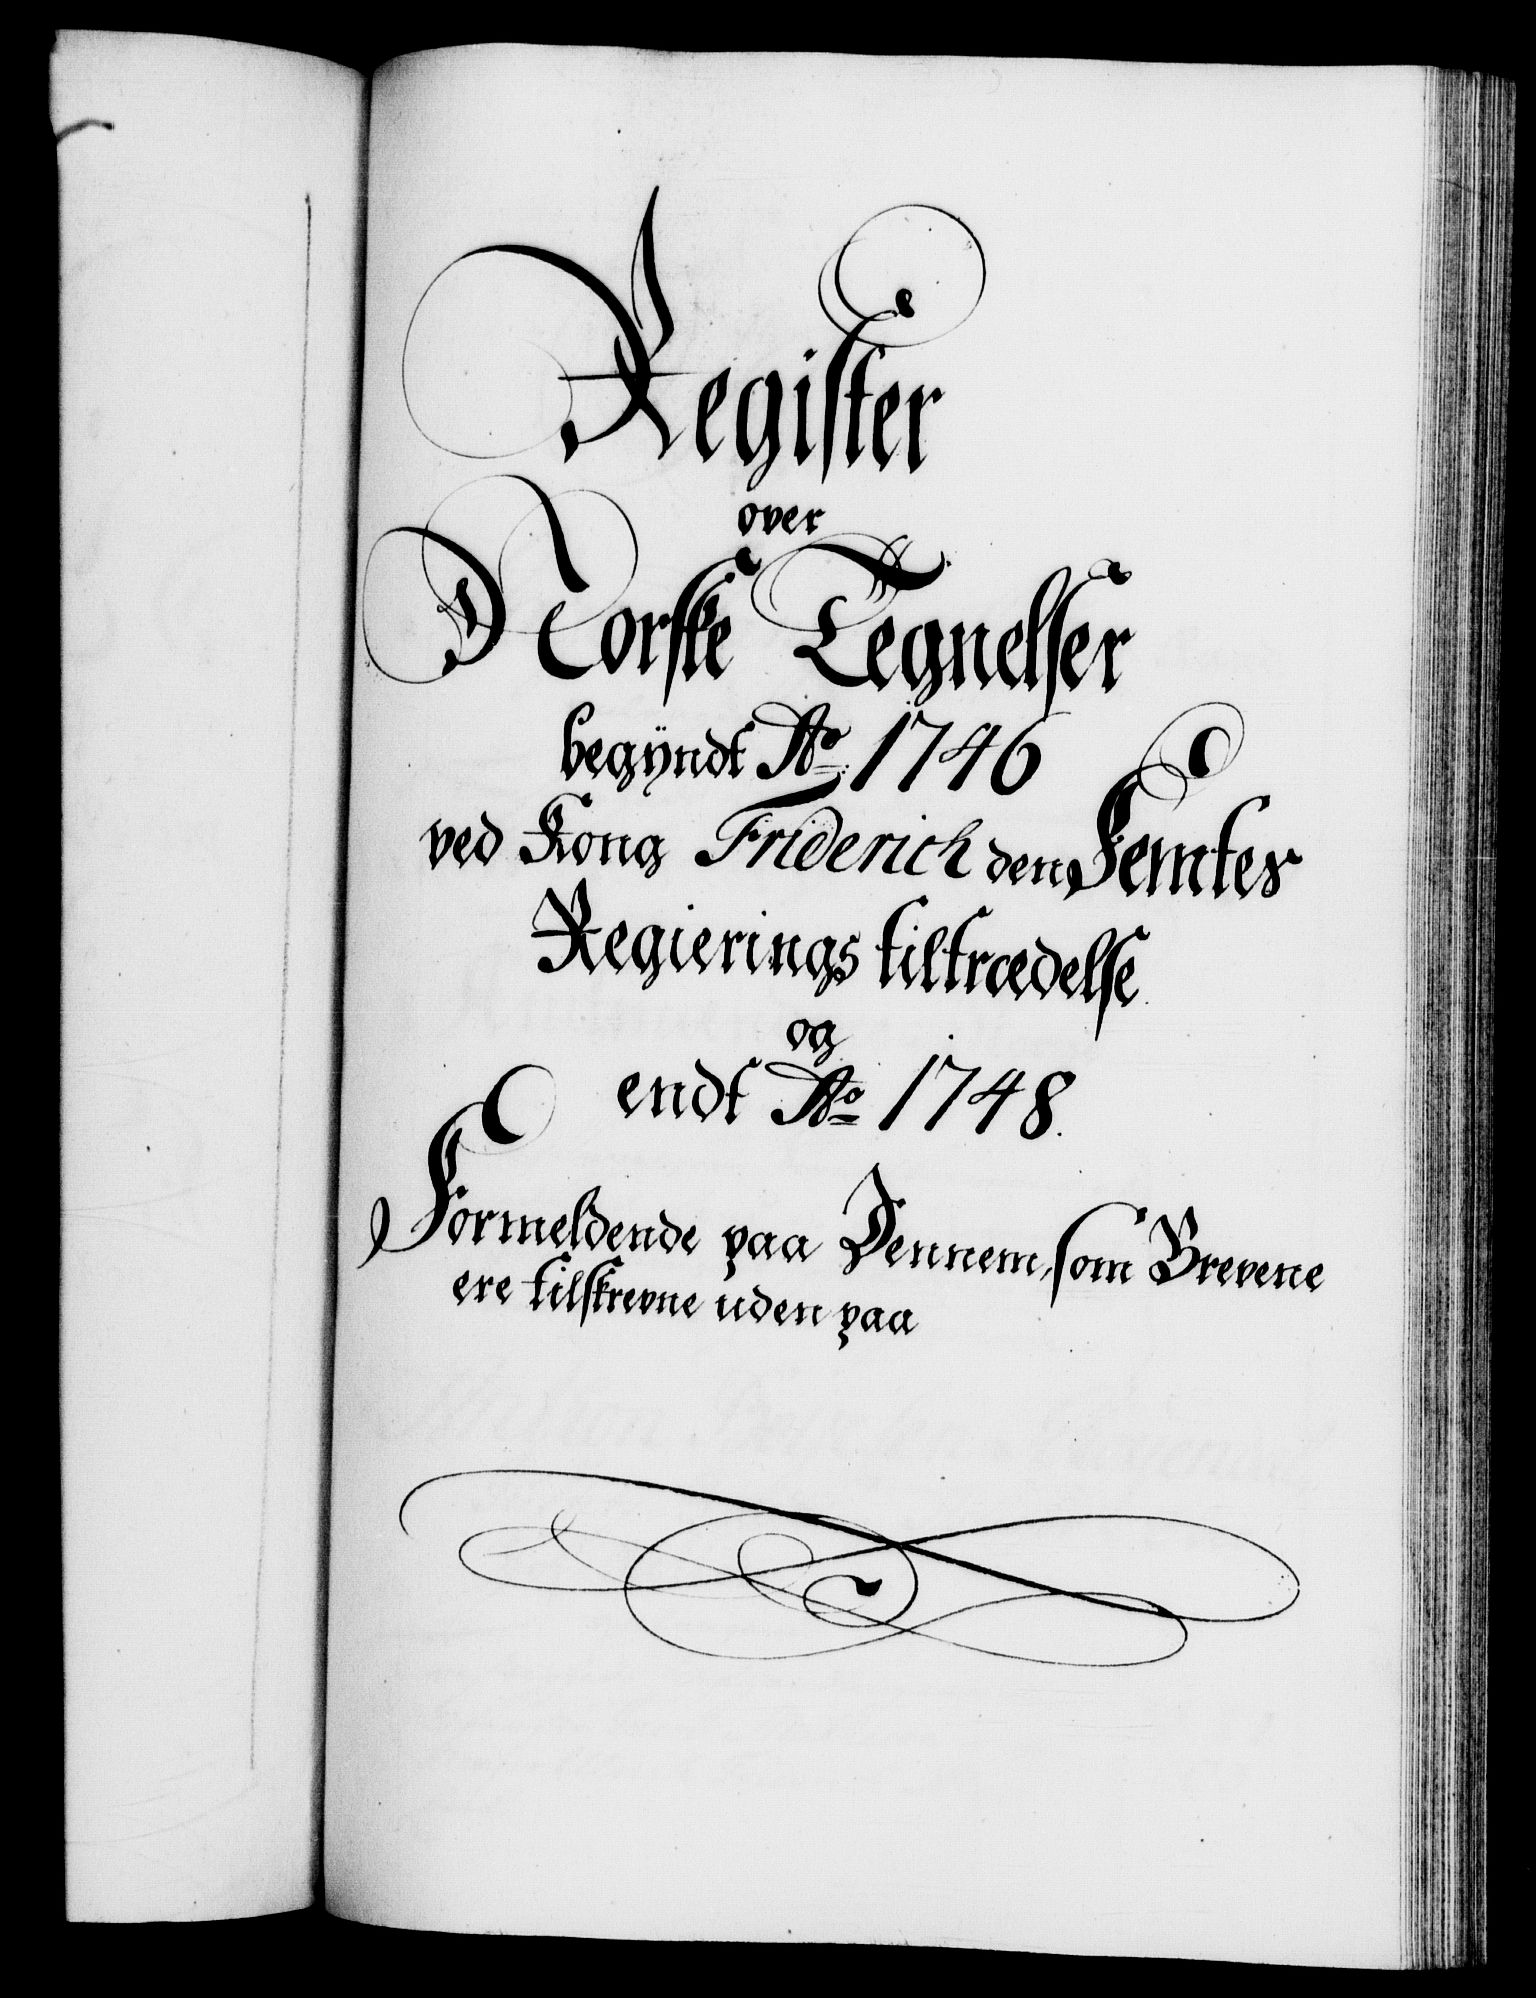 Register
over
Norske Tegnelser
begÿndt Ao 1746
ved Kong Friderich den Femtes
Regierings tiltrædelse
og
endt Ao 1748.
Formeldende paa Dennem, som Brevene
ere tilskrevne uden paa